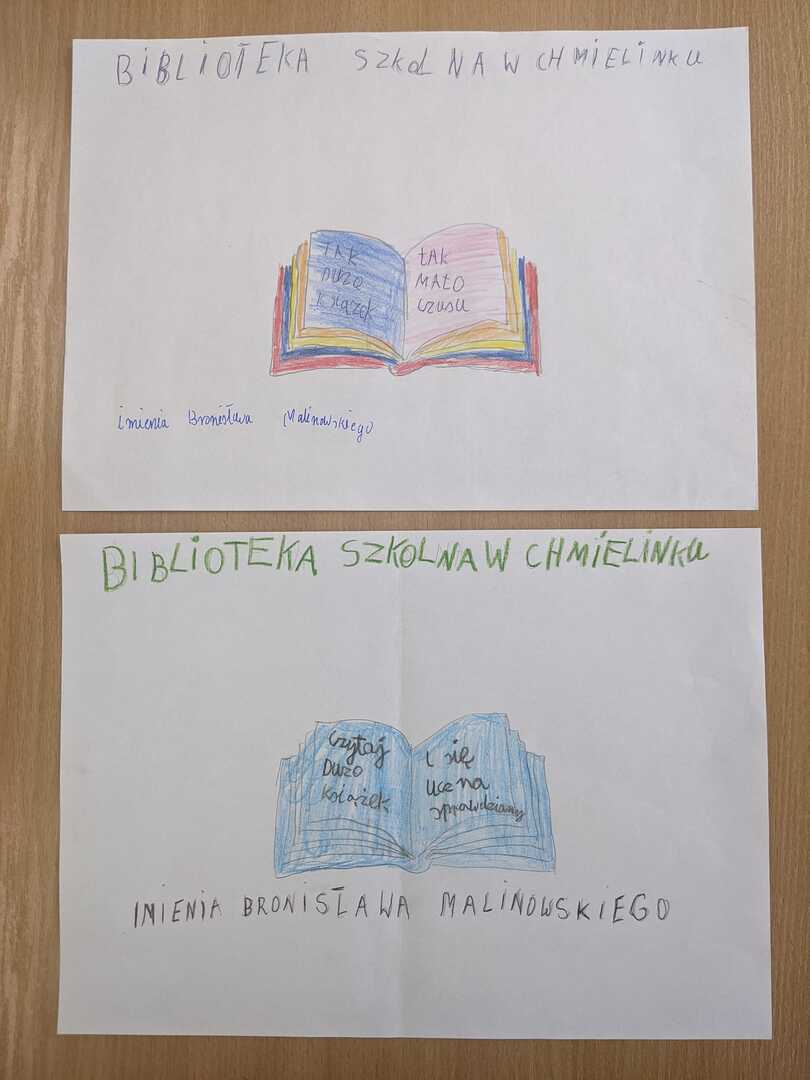 BIBLIOTEKA SZKOLNA W CHMIELINKU
TAK
DUŻO
KSIĄŻEK
TAK
MAŁO
CZASU
imienia Bronisława Malinowskiego
BIBLIOTEKA SZKOLNA W CHMIELINKU
czytaj
DUŻO
KSIĄŻEK
i się
ucz na
sprawdziany
IMIENIA BRONISŁAWA MALINOWSKIEGO